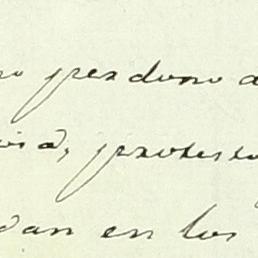 perdono a
protesto
dan en los